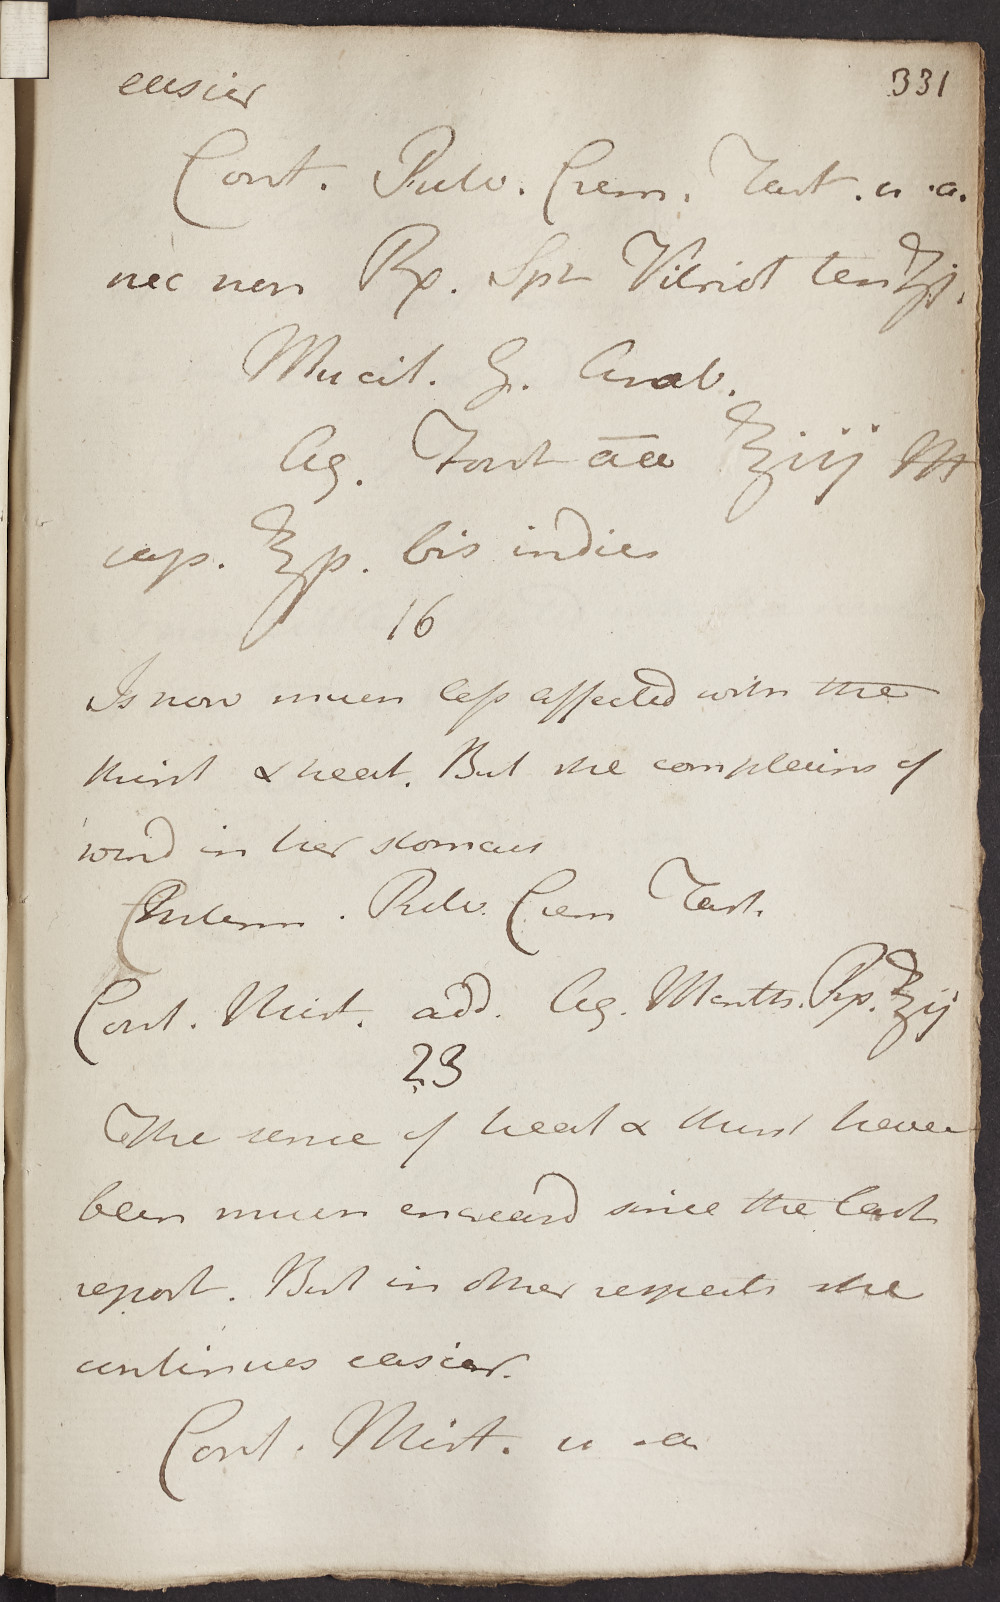 331
easier
Cont. Pulv. Crem. Tart. u. a.
nec non Rx. Spr Vitriol ten ʒj.
Mucil. G. Arab.
Aq. Font āā ℥iij M
cap. ℥ß. bis indies
16
Is now much less affected with the
thirst & heat. But she complains of
wind in her stomach
Pulv. Crem Tart.
Cont. Mist. add. Aq. Menth. Pip. ℥ij
23
The sense of heat & thirst have
been much encreasd since the last
report. But in other respects she
continues easier.
Cont. Mist. u. a